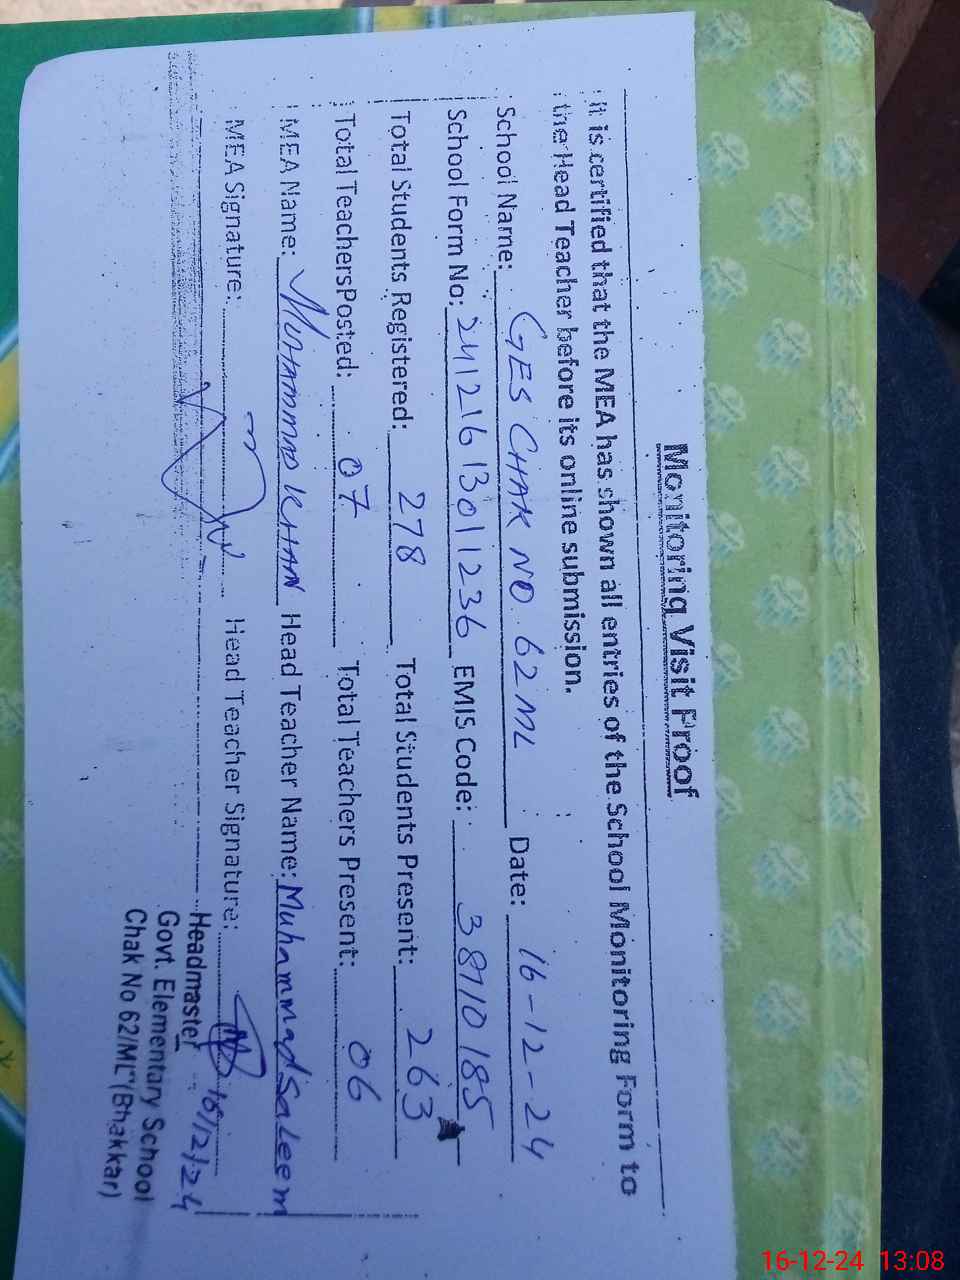 Monitoring Visit Proof
it is certified that the MEA has shown all entries of the School Monitoring Form to
the Head Teacher before its online submission.
School Name: GES CHAK NO. 62 ML Date: 16-12-24
School Form No: 241216 1301 1236 EMIS Code: 38710185
Total Students Registered: 278 Total Students Present: 263
Total TeachersPosted: 07 Total Teachers Present: 06
MEA Name: MUHAMMAD KHAN Head Teacher Name: Muhammad Saleem
MEA Signature: Head Teacher Signature:
16/12/24
Headmaster
Govt. Elementary School
Chak No 62/ML (Bhakkar)
16-12-24 13:08